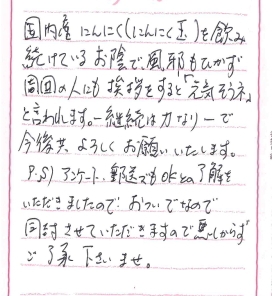 国内産にんにく(にんにく玉)を飲み
続けているお陰で、風邪もひかず
周囲の人にも挨拶をすると「元気そうネ」
と言われます。一継続は力なり一で
今後共、よろしくお願いいたします。
P.S) アンケート、郵送でもokとの了解を
いただきましたので、おついでなので
同封させていただきますので悪しからず
ご了承下さいませ。